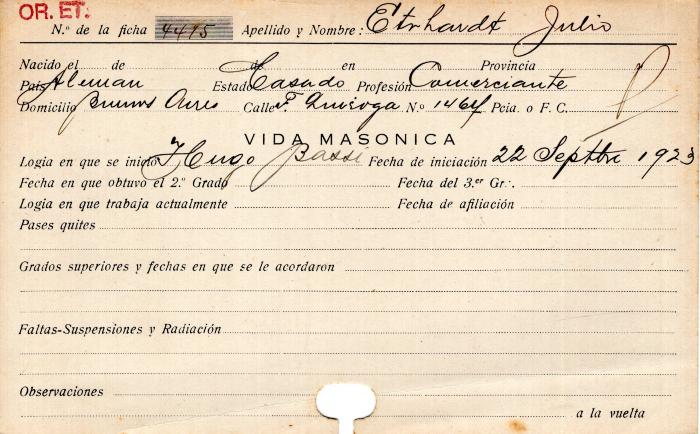 OR. ET.
N.º de la ficha 4495 Apellido y Nombre: Ehrhardt Julio
Nacido el de de en Provincia
País Aleman Estado Casado Profesión Comerciante
Domicilio Buenos Aires Calle F. Quiroga N.º 1464 Pcia. o F. C.
VIDA MASONICA
Logia en que se inició Hugo Bassi Fecha de iniciación 22 Septbre 1923
Fecha en que obtuvo el 2.º Grado Fecha del 3.er Gr∴
Logia en que trabaja actualmente Fecha de afiliación
Pases quites
Grados superiores y fechas en que se le acordaron
Faltas-Suspensiones y Radiación
Observaciones
a la vuelta